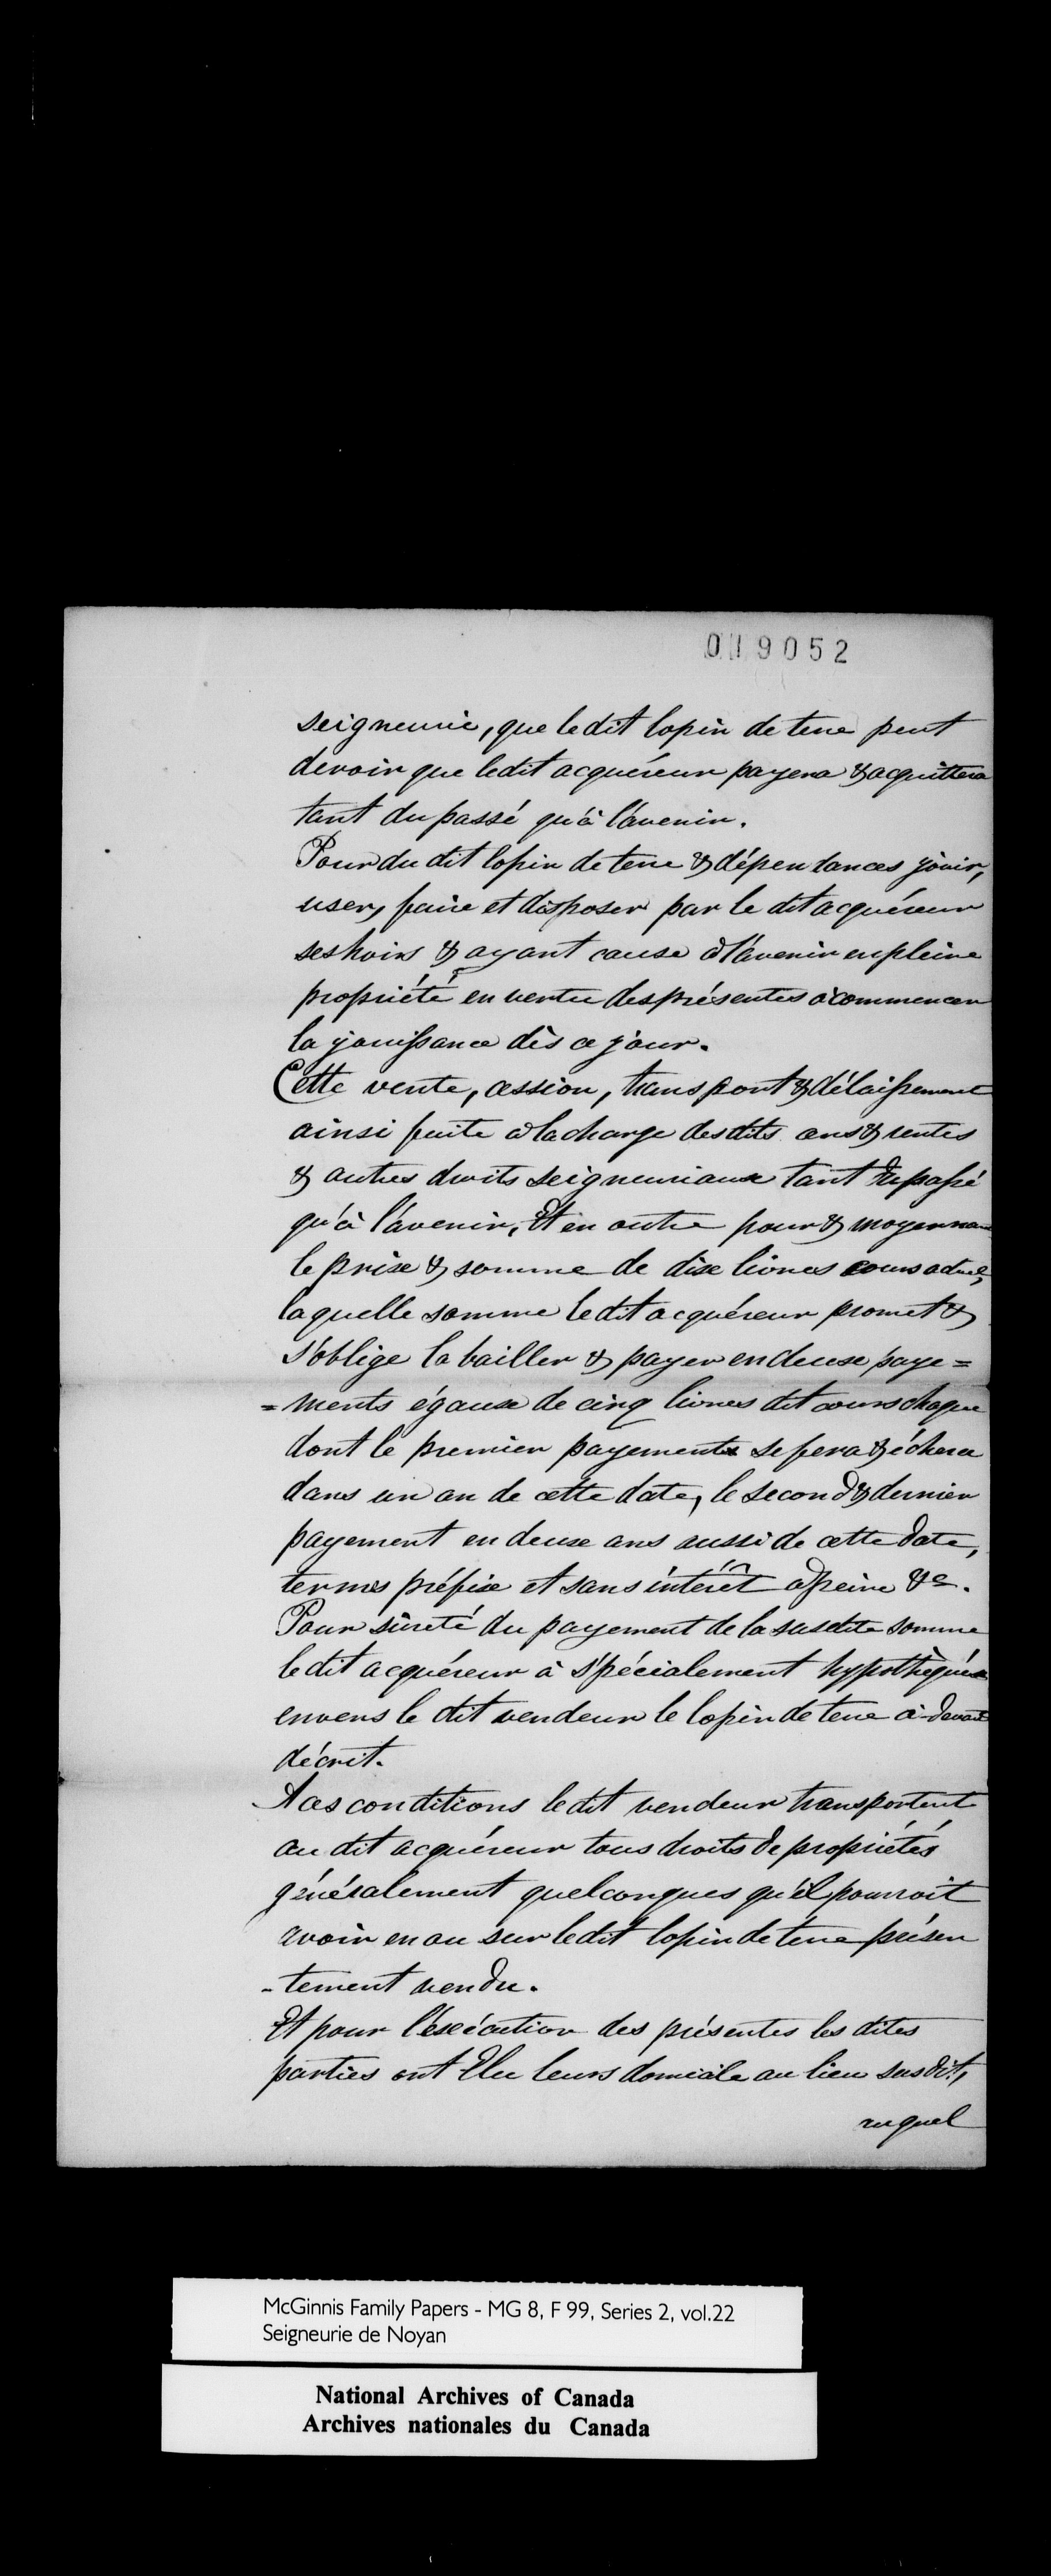 019052
seigneurie, que ledit lopin de terre peut
devoir que ledit acquéreur payera & acquittera
tant du passé qu'à l'avenir.
Pour du dit lopin de terre & dépendances jouir,
user, faire et disposer par le dit acquéreur
ses hoirs & ayant cause à l'avenir en pleine
propriété en vertu des présentes à commencer
la jouissance dès ce jour.
Cette vente, cession, transport & délaissement
ainsi faite à la charge des dits cens & rentes
& autres droits seigneuriaux tant du passé
qu'à l'avenir, Et en outre pour & moyennant
le prix & somme de dix livres cours actuel,
laquelle somme ledit acquéreur promet &
s'oblige la bailler & payer en deux paye=
=ments égaux de cinq livres dit cours chaque
dont le premier payement se fera & échera
dans un an de cette date, le second & dernier
payement en deux ans aussi de cette date,
termes préfix et sans intérêt à peine &c.
Pour sûreté du payement de la susdite somme
ledit acquéreur à spécialement hypothéqué
envers le dit vendeur le lopin de terre ci-devant
décrit.
A ces conditions ledit vendeur transportent
au dit acquéreur tous droits de propriétés
généralement quelconques qu'il pourroit
avoir en ou sur ledit lopin de terre présen
-tement vendu.
Et pour l'exécution des présentes les dites
parties ont Elu leurs domicile au lieu susdit,
auquel
McGinnis Family Papers - MG 8, F 99, Series 2, vol.22
Seigneurie de Noyan
National Archives of Canada
Archives nationales du Canada